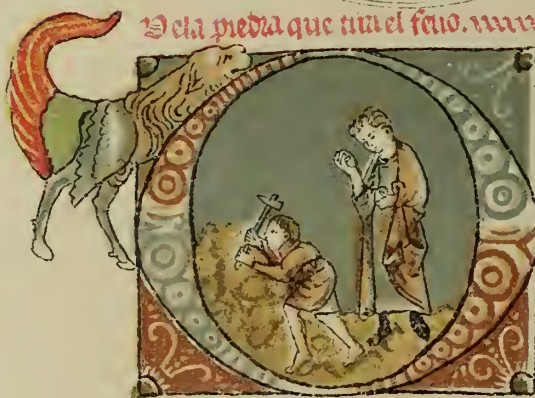 Dela piedra que tira el feuo.